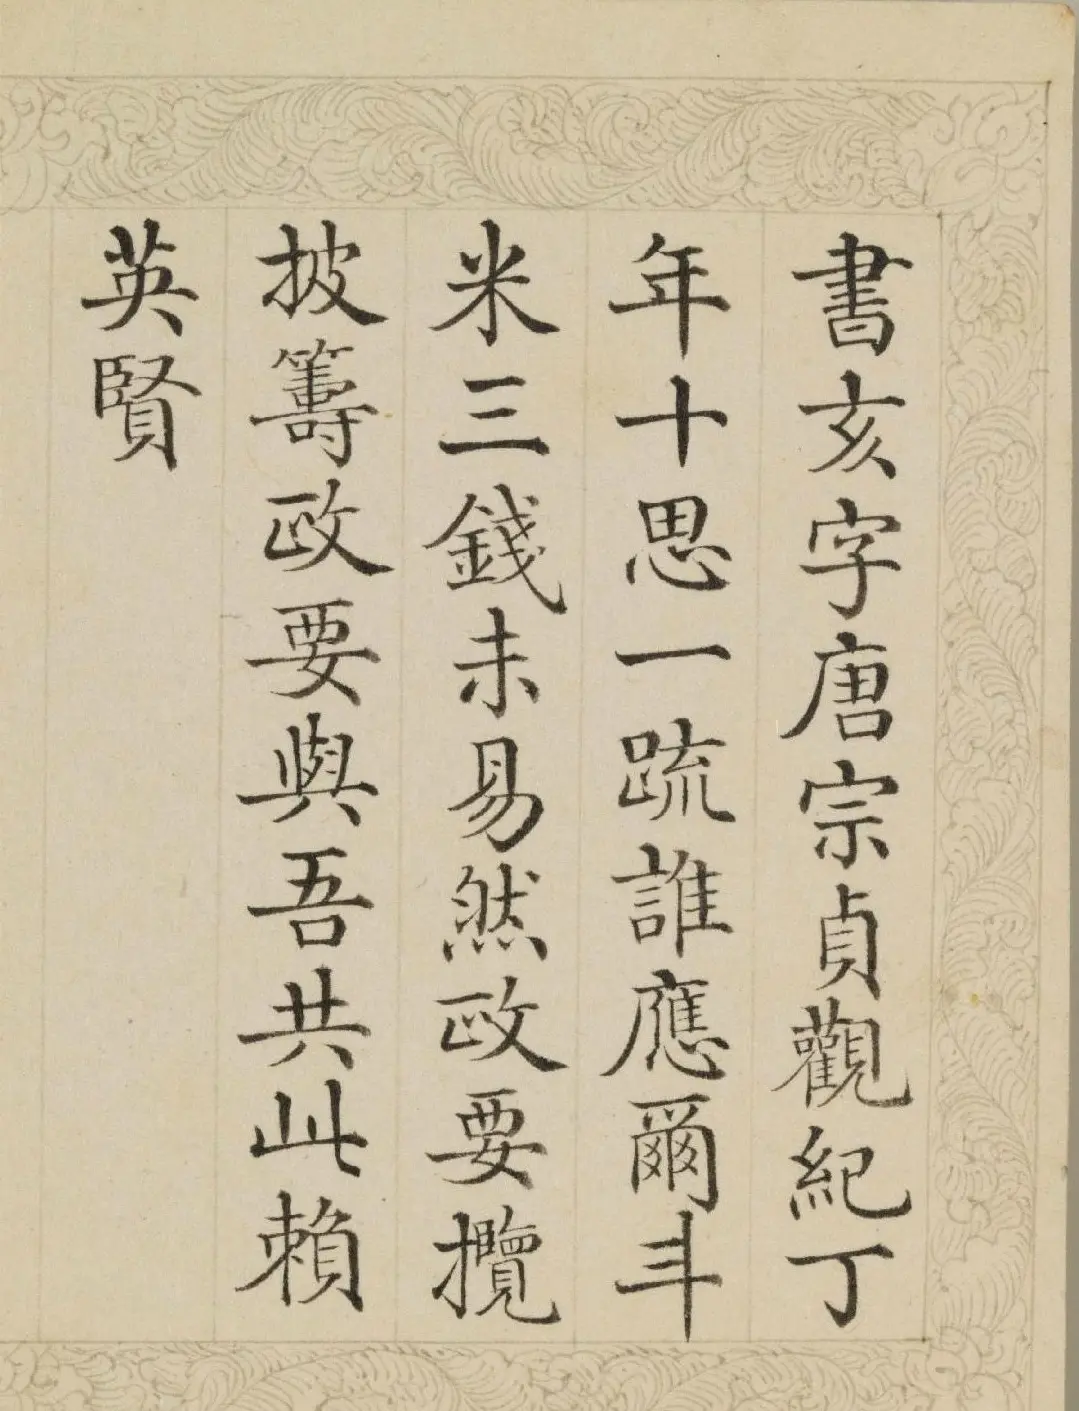 書亥字唐宗貞觀紀丁
年十思一疏誰應爾斗
米三錢未易然政要攬
披籌政要與吾共此賴
英賢